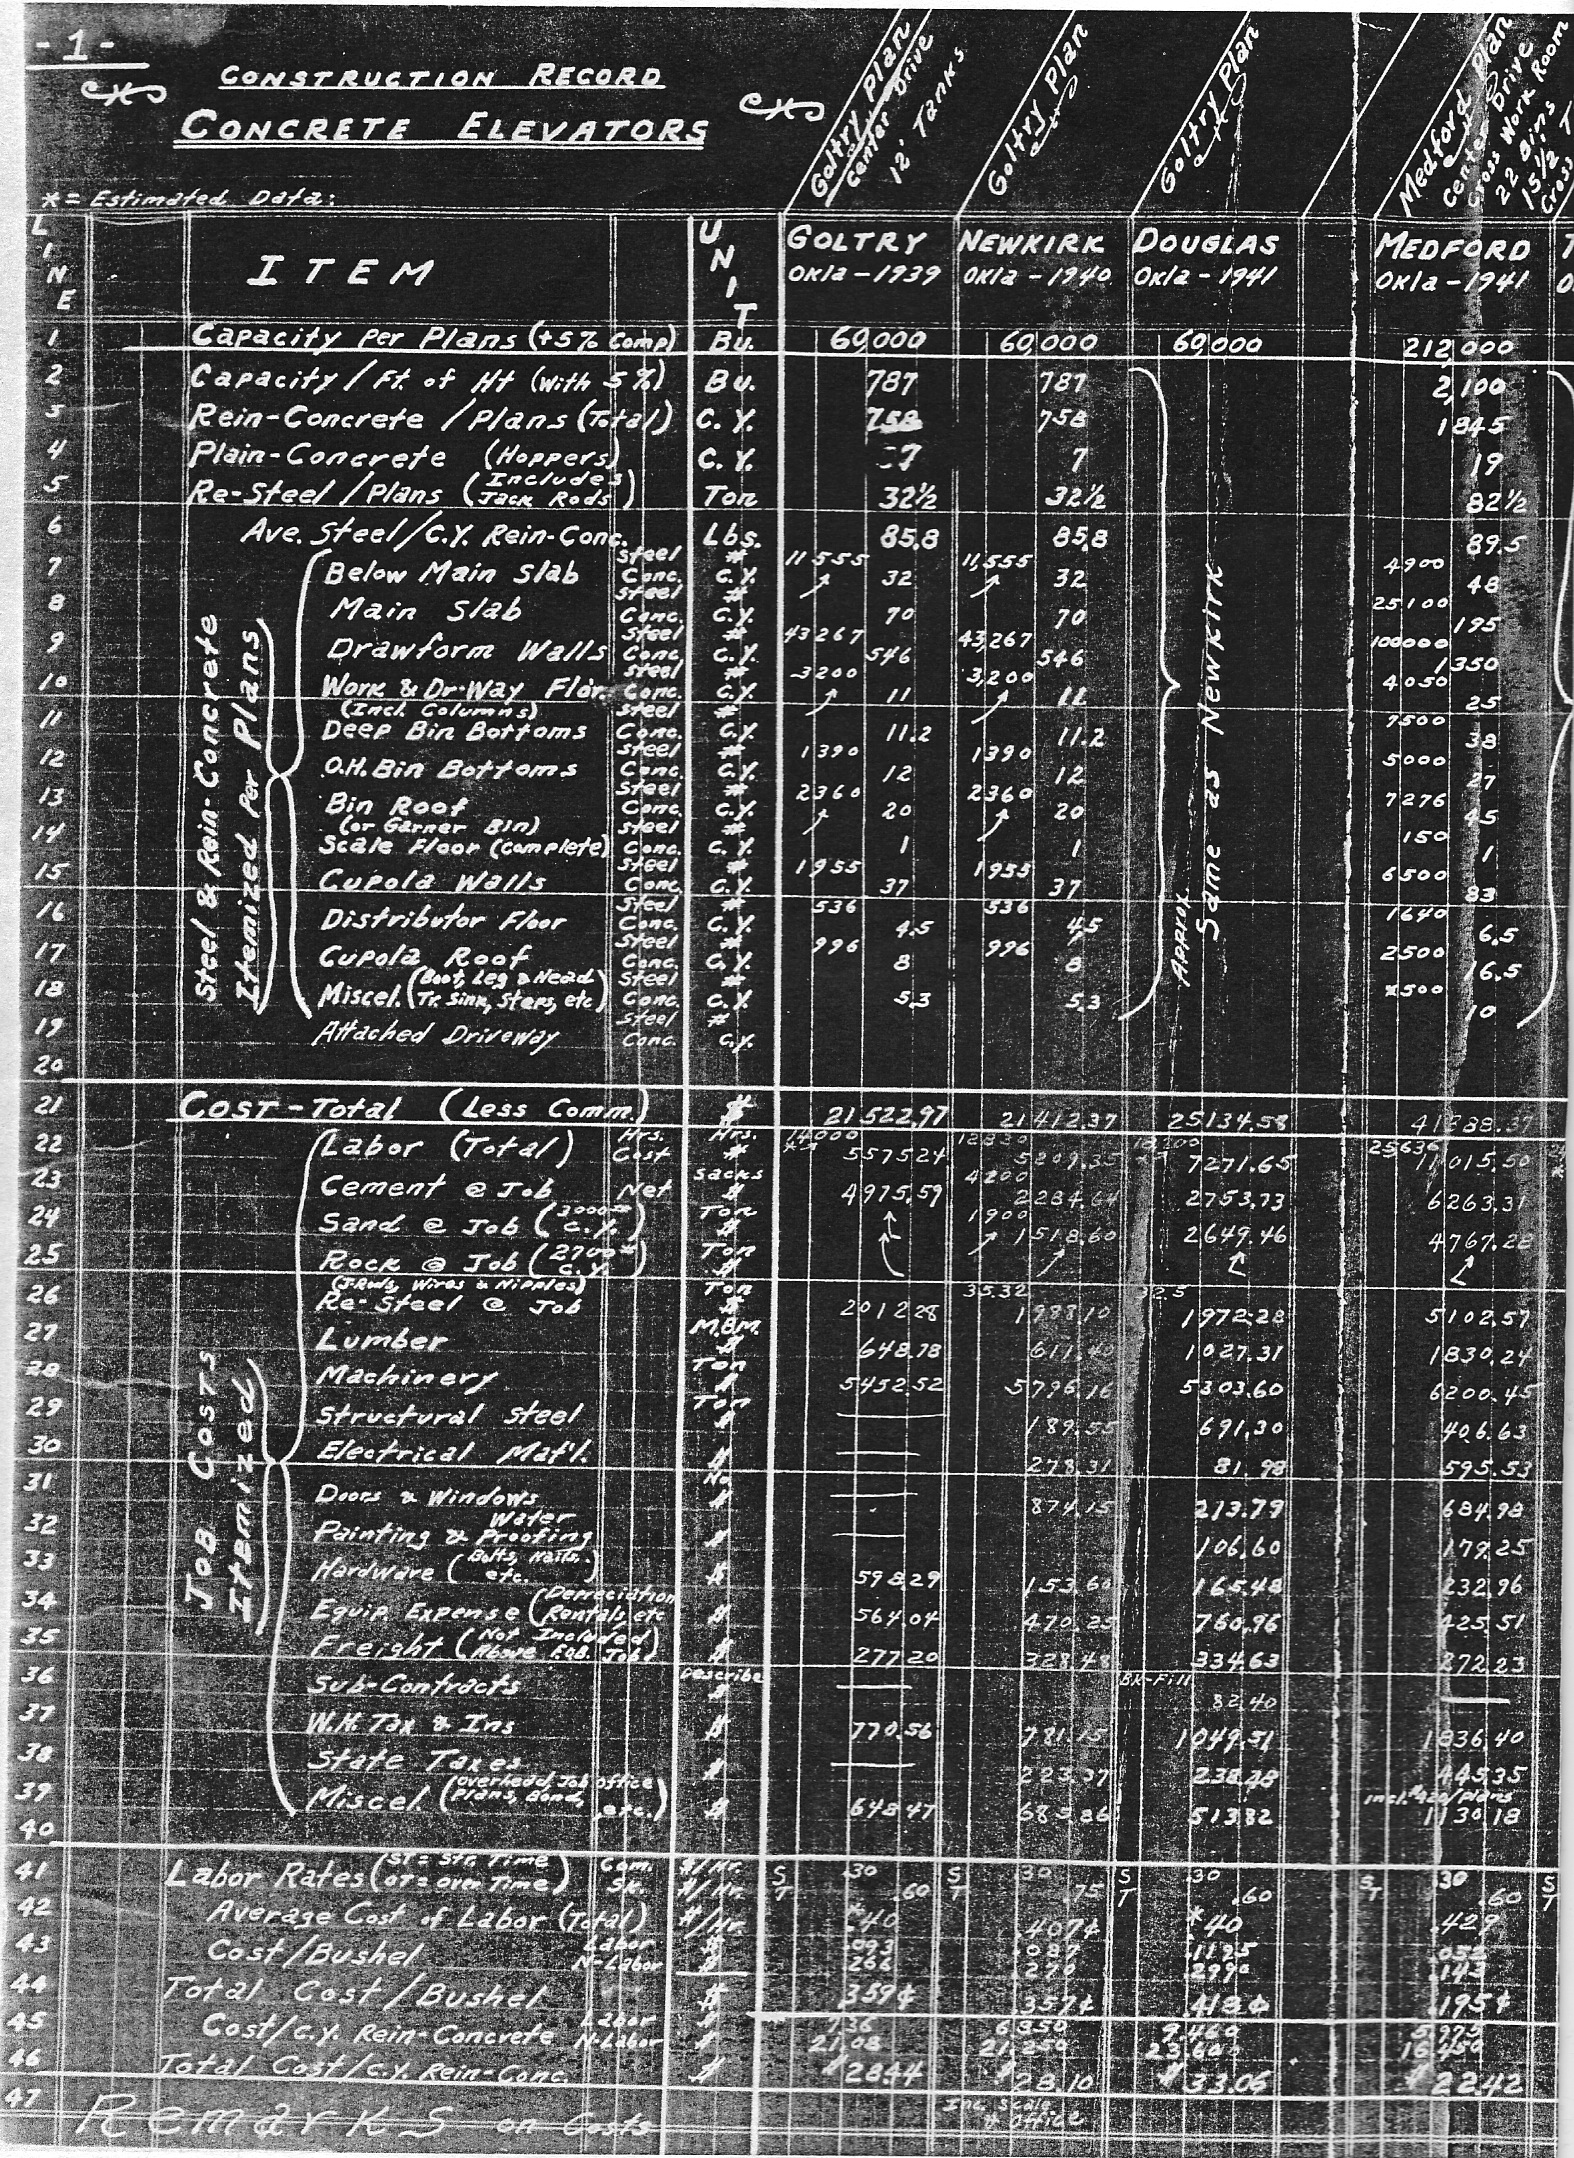 - 1 -
CONSTRUCTION RECORD
CONCRETE ELEVATORS
* = Estimated Data:
Goltry Plan
Center Drive
12' Tanks
Goltry Plan
Goltry Plan
Medford Plan
Center Drive
Cross Work Room
22 Bins
15 1/2
LINE
ITEM
UNIT
GOLTRY NEWKIRK DOUGLAS MEDFORD
Okla - 1939 Okla - 1940 Okla - 1941 Okla - 1941
1 Capacity Per Plans (+5% Comp) Bu. 60,000 60,000 60,000 212,000
2 Capacity / Ft. of Ht (with 5%) Bu. 787 787 2,100
3 Rein-Concrete / Plans (Total) C.Y. 758 758 1845
4 Plain-Concrete (Hoppers) C.Y. 7 7 19
5 Re-Steel / Plans (Includes Jack Rods) Ton 32½ 32½ 82½
6 Ave. Steel / C.Y. Rein-Conc. Lbs. 85.8 85.8 89.5
Steel & Rein-Concrete
Itemized Per Plans
Approx. Same as Newkirk
7 Below Main Slab Steel # 11555 11,555 4900
Conc. C.Y. 32 32 48
8 Main Slab Steel # 25100
Conc. C.Y. 70 70 195
9 Drawform Walls Steel # 43267 43,267 100000
Conc. C.Y. 546 546 1350
10 Work & Dr-Way Flor. (Incl. Columns) Steel # 3200 3,200 4050
Conc. C.Y. 11 11 25
11 Deep Bin Bottoms Steel # 7500
Conc. C.Y. 11.2 11.2 38
12 O.H. Bin Bottoms Steel # 1390 1390 5000
Conc. C.Y. 12 12 27
13 Bin Roof Steel # 2360 2360 7276
Conc. C.Y. 20 20 45
14 (or Garner Bin) Scale Floor (complete) Steel # 150
Conc. C.Y. 1 1 1
15 Cupola Walls Steel # 1955 1955 6500
Conc. C.Y. 37 37 83
16 Distributor Floor Steel # 536 536 1640
Conc. C.Y. 4.5 4.5 6.5
17 Cupola Roof Steel # 996 996 2500
Conc. C.Y. 8 8 16.5
18 Miscel. (Boot, Leg & Head, Tr. Sink, Steps, etc) Steel #
Conc. C.Y. 5.3 5.3 10
19 Attached Driveway Steel #
Conc. C.Y.
20
21 COST - Total (Less Comm.) $ 21522.97 21412.37 25134.58
Job Costs
Itemized
22 Labor (Total) Hrs. Hrs. 14000 25636
Cost $ 5575.24 7271.65 11015.50
23 Cement @ Job Net Sacks 4200
$ 4975.59 2284.64 2753.73 6263.31
24 Sand @ Job (3000# C.Y.) Ton 1900
$ 1518.60 2649.46 4767.28
25 Rock @ Job (2700# C.Y.) Ton
$
26 (J.Rods, Wires & Nipples) Re-Steel @ Job Ton 35.32 32.5
$ 2012.28 1988.10 1972.28 5102.57
27 Lumber M.B.M.
$ 648.78 611.40 1027.31 1830.24
28 Machinery Ton
$ 5452.52 5796.16 5303.60 6200.45
29 Structural Steel Ton
$ 189.55 691.30 406.63
30 Electrical Mat'l. $ 278.31 81.98 595.53
31 Doors & Windows No.
$ 874.15 213.79 684.98
32 Painting & Water Proofing $ 106.60 179.25
33 Hardware (Bolts, Nails, etc.) $ 598.29 153.60 165.48 232.96
34 Equip. Expense (Depreciation Rentals, etc $ 564.04 470.25 760.96 425.51
35 Freight (Not Included Above F.O.B. Job) $ 277.20 328.48 334.63 272.23
36 Sub-Contracts Describe Bk-Fill
$ 82.40
37 W.H. Tax & Ins $ 770.56 781.15 1049.51 1836.40
38 State Taxes $ 223.37 238.48 445.35
39 Miscel. (Overhead, Job office Plans, Bond, etc.) $ 648.47 513.82 incl. $420/plans 1130.18
40
41 Labor Rates (ST = Str. Time OT = over Time) Com. $/Hr. ST .30 ST .30 ST .30 ST .30
Sk. $/Hr. .60 .75 .60 .60
42 Average Cost of Labor (Total) $/Hr. *.40 .407¢ *.40 .429
43 Cost/Bushel Labor $ .093 .087 .1195 .052
N-Labor $ .266 .270 .2990 .143
44 Total Cost / Bushel $ .359¢ .357¢ .418¢ .195¢
45 Cost/C.Y. Rein-Concrete Labor $ 7.36 6.850 9.460 5.975
N-Labor $ 21.08 21.250 23.600 16.450
46 Total Cost/C.Y. Rein-Conc. $ $28.44 $28.10 $33.06 $22.42
47 Remarks on Costs Inc. Scale & Office